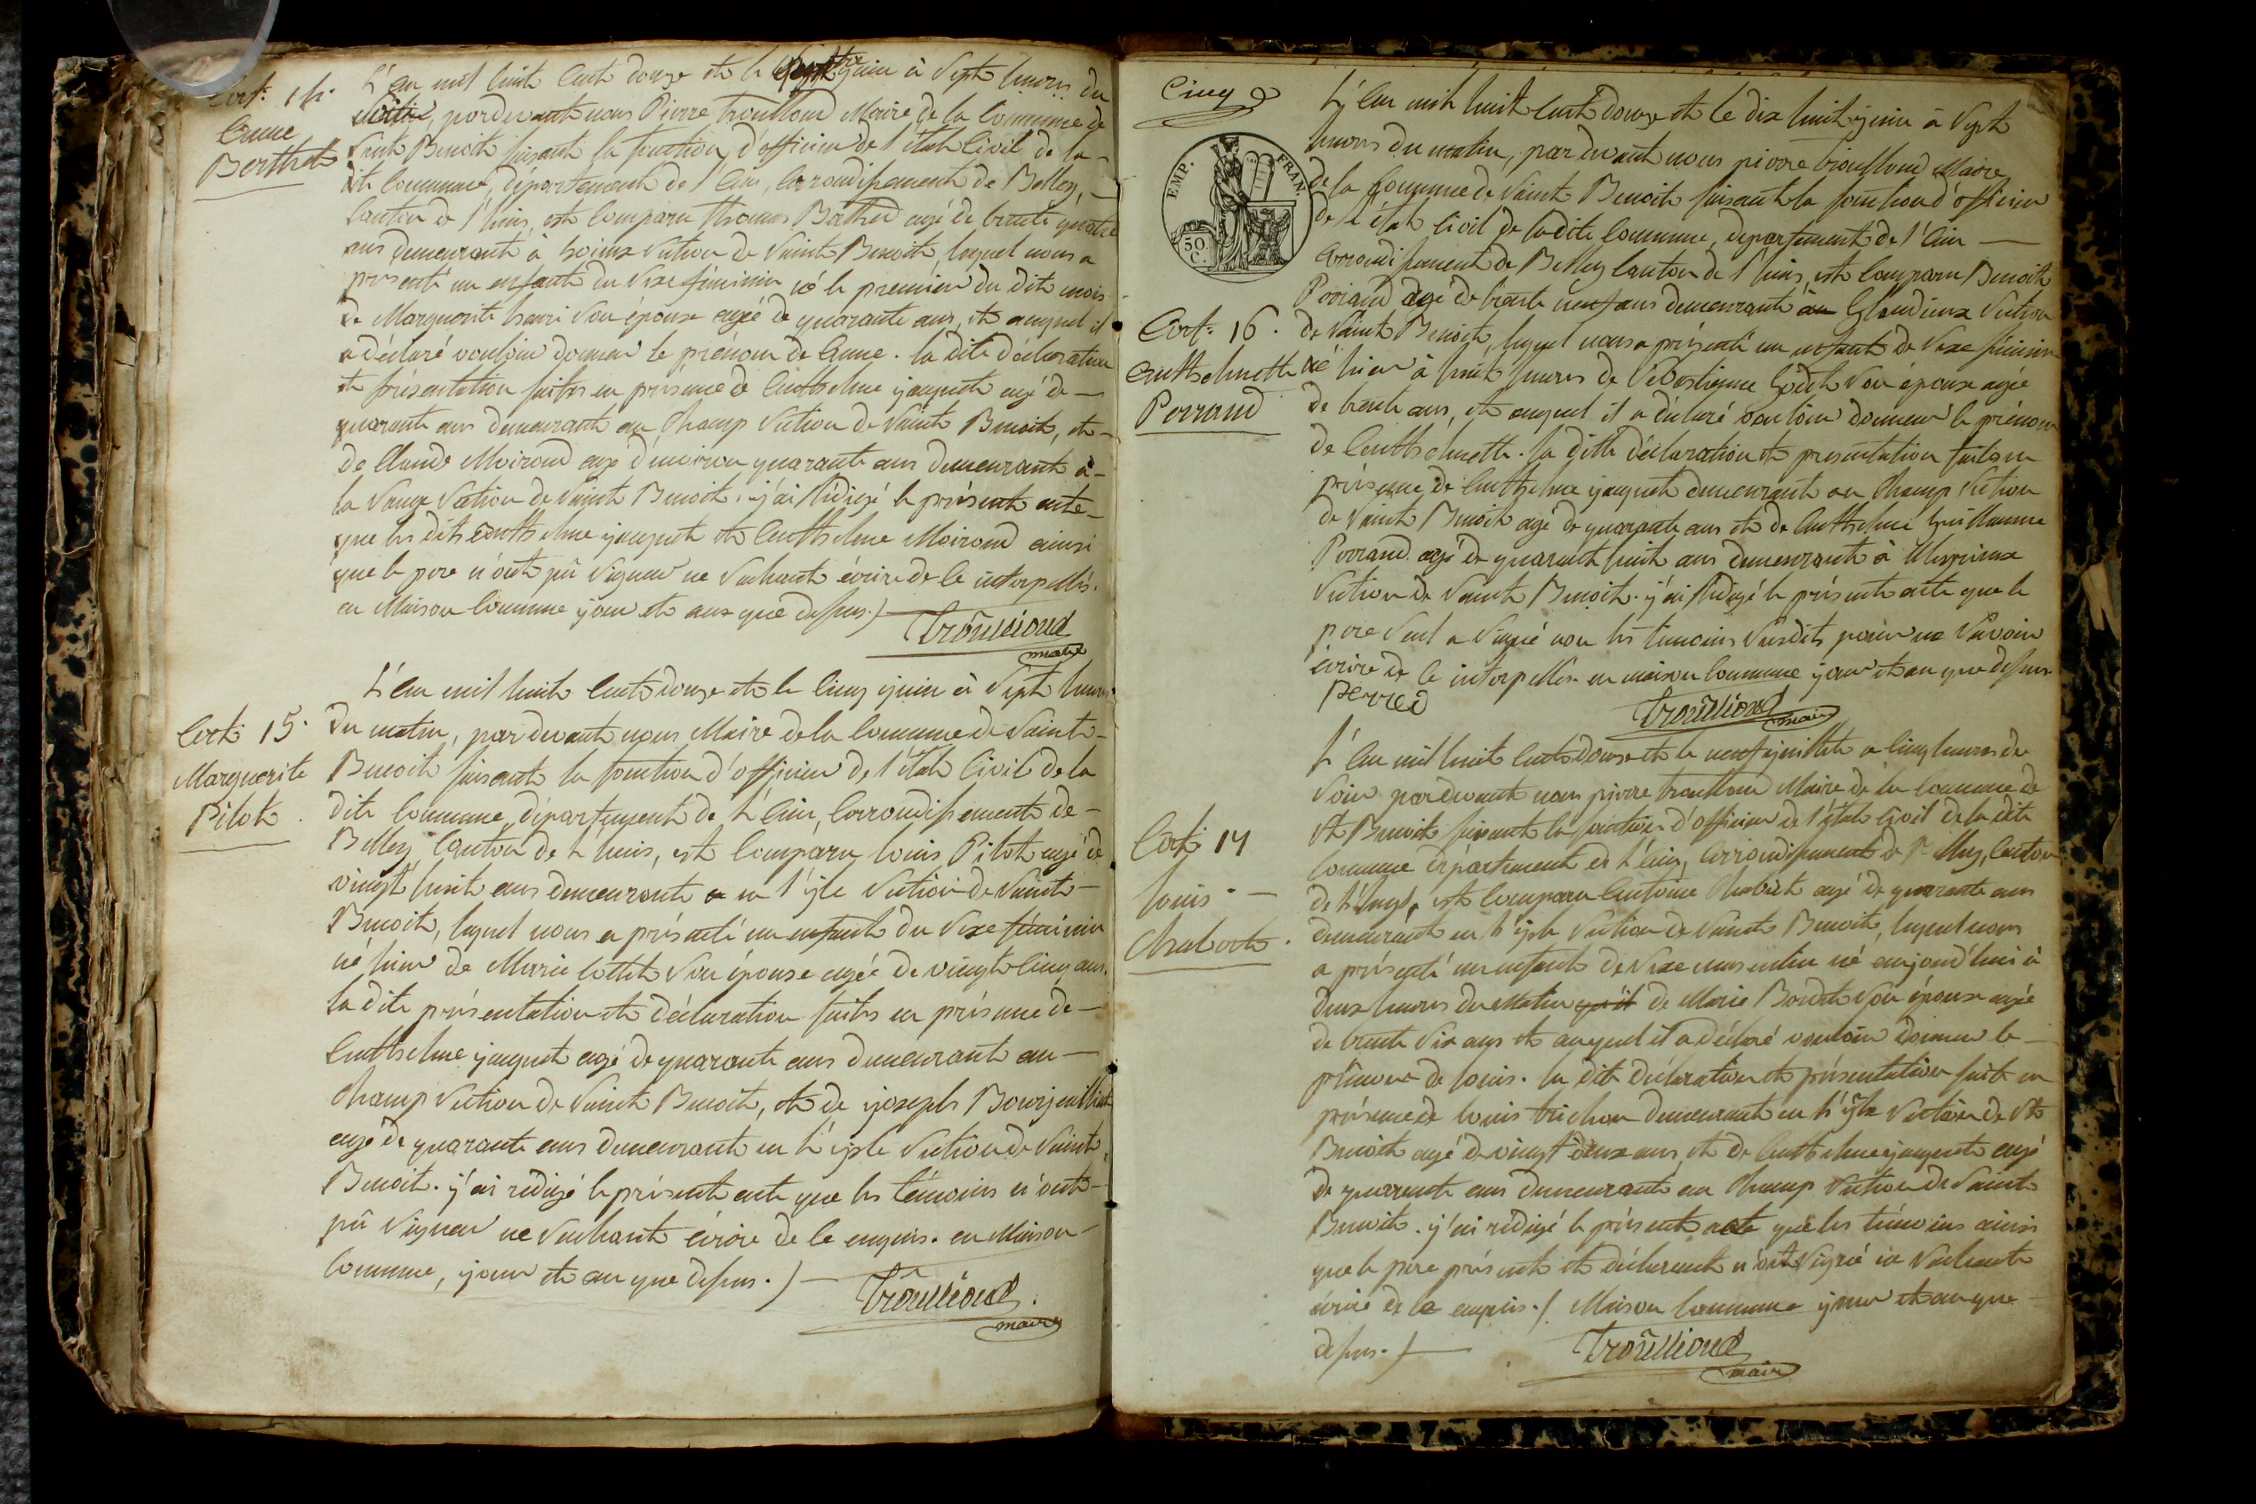 art: 14.
anne
Berthet
L'an mil huit cents douze et le juin à Sept heures du
pardevant nous Pierre trouilloud Maire de la Commune de
Saint Benoit faisant la fonction d'officier de l'état Civil de la
dite Commune, département de l'ain, arrondissement de Belley,
Canton de l'huis, est Comparu thomas Berthet agé de trente quatre
ans demeurant à Section de Saint Benoit, lequel nous a
présenté un enfant du Sexe féminin né le premier du dit mois
de Marguerite son épouse agée de quarante ans, et auquel il
a déclaré vouloir donner le prénom de anne. la dite déclaration
et présentation faites en présence de anthelme jaquet agé de
quarante ans demeurant au Champ Section de Saint Benoit, et
de Claude Moiroud agé d'environ quarante ans demeurant à
la Section de Saint Benoit. j'ai Rédigé le présent acte
que les dits anthelme jaquet et anthelme Moiroud ainsi
que le pere n'ont pû Signer ne Sachant écrire de ce interpellés.
en Maison Commune jour et an que dessus.
Trouilloud
maire
art: 15.
Marguerite
Pilot.
L'an mil huit cents douze et le Cinq juin à Sept heures
du matin, pardevant nous Maire de la Commune de Saint
Benoit faisant la fonction d'officier de l'état Civil de la
dite Commune, département de l'ain, arrondissement de
Belley Canton de l'huis, est Comparu louis Pilot agé de
vingt huit ans demeurant en l'isle Section de Saint
Benoit, lequel nous a présenté un enfant du Sexe féminin
né hier de Marie son épouse agée de vingt Cinq ans.
la dite présentation et déclaration faites en présence de
anthelme jaquet agé de quarante ans demeurant au
Champ Section de Saint Benoit, et de joseph
agé de quarante ans demeurant en l'isle Section de Saint
Benoit. j'ai rédigé le présent acte que les témoins n'ont
pû Signer ne Sachant écrire de ce enquis. en Maison
Commune, jour et an que dessus.
Trouilloud
maire
Cinq
EMP. FRAN.
50.
C.
L'an mil huit cents douze et le dix huit juin à Sept
heures du matin, pardevant nous pierre trouilloud Maire
de la Commune de Saint Benoit faisant la fonction d'officier
de l'état Civil de la dite Commune, departement de l'ain
arrondissement de Belley Canton de l'huis, est Comparu Benoit
Perraud agé de trente neuf ans demeurant Glandieux Section
de Saint Benoit, lequel nous a présenté un enfant de Sexe féminin
né hier à huit heures de son épouse agée
de trente ans, et auquel il a déclaré vouloir donner le prénom
de anthelmette. la ditte déclaration et presentation faites en
présence de anthelme jaquet demeurant au Champ Section
de Saint Benoit agé de quarante ans et de anthelme Guillaume
Perraud agé de quarante huit ans demeurant à
Section de Saint Benoit. j'ai Rédigé le présent acte que le
pere Seul a Signé non les temoins Susdits pour ne Savoir
écrire de ce interpellés. en maison Commune jour et an que dessus.
Trouilloud
maire
art: 16.
anthelmette
Perraud
L'an mil huit cents douze et le neuf juillet a Cinq heures du
Soir pardevant nous pierre trouilloud Maire de la Commune de
St Benoit faisant la fonction d'officier de l'état Civil de la dite
Commune département de l'ain, arrondissement de Belley, Canton
de l'huis, est Comparu antoine Chabert agé de quarante ans
demeurant en l'isle Section de Saint Benoit, lequel nous
a présenté un enfant de Sexe masculin né aujourd'hui à
deux heures du Matin de Marie son épouse agée
de trente Six ans et auquel il a déclaré vouloir donner le
prénom de louis. la dite déclaration et présentation faite en
présence de louis trichon demeurant en l'isle Section de St
Benoit agé de vingt deux ans, et de anthelme jaquet agé
de quarante ans demeurant au Champ Section de Saint
Benoit. j'ai rédigé le présent acte que les témoins ainsi
que le pere présent et déclarant n'ont Signé ne Sachant
écrire de ce enquis. Maison Commune jour et an que
dessus.
Trouilloud
maire
art: 17
louis
Chabert.